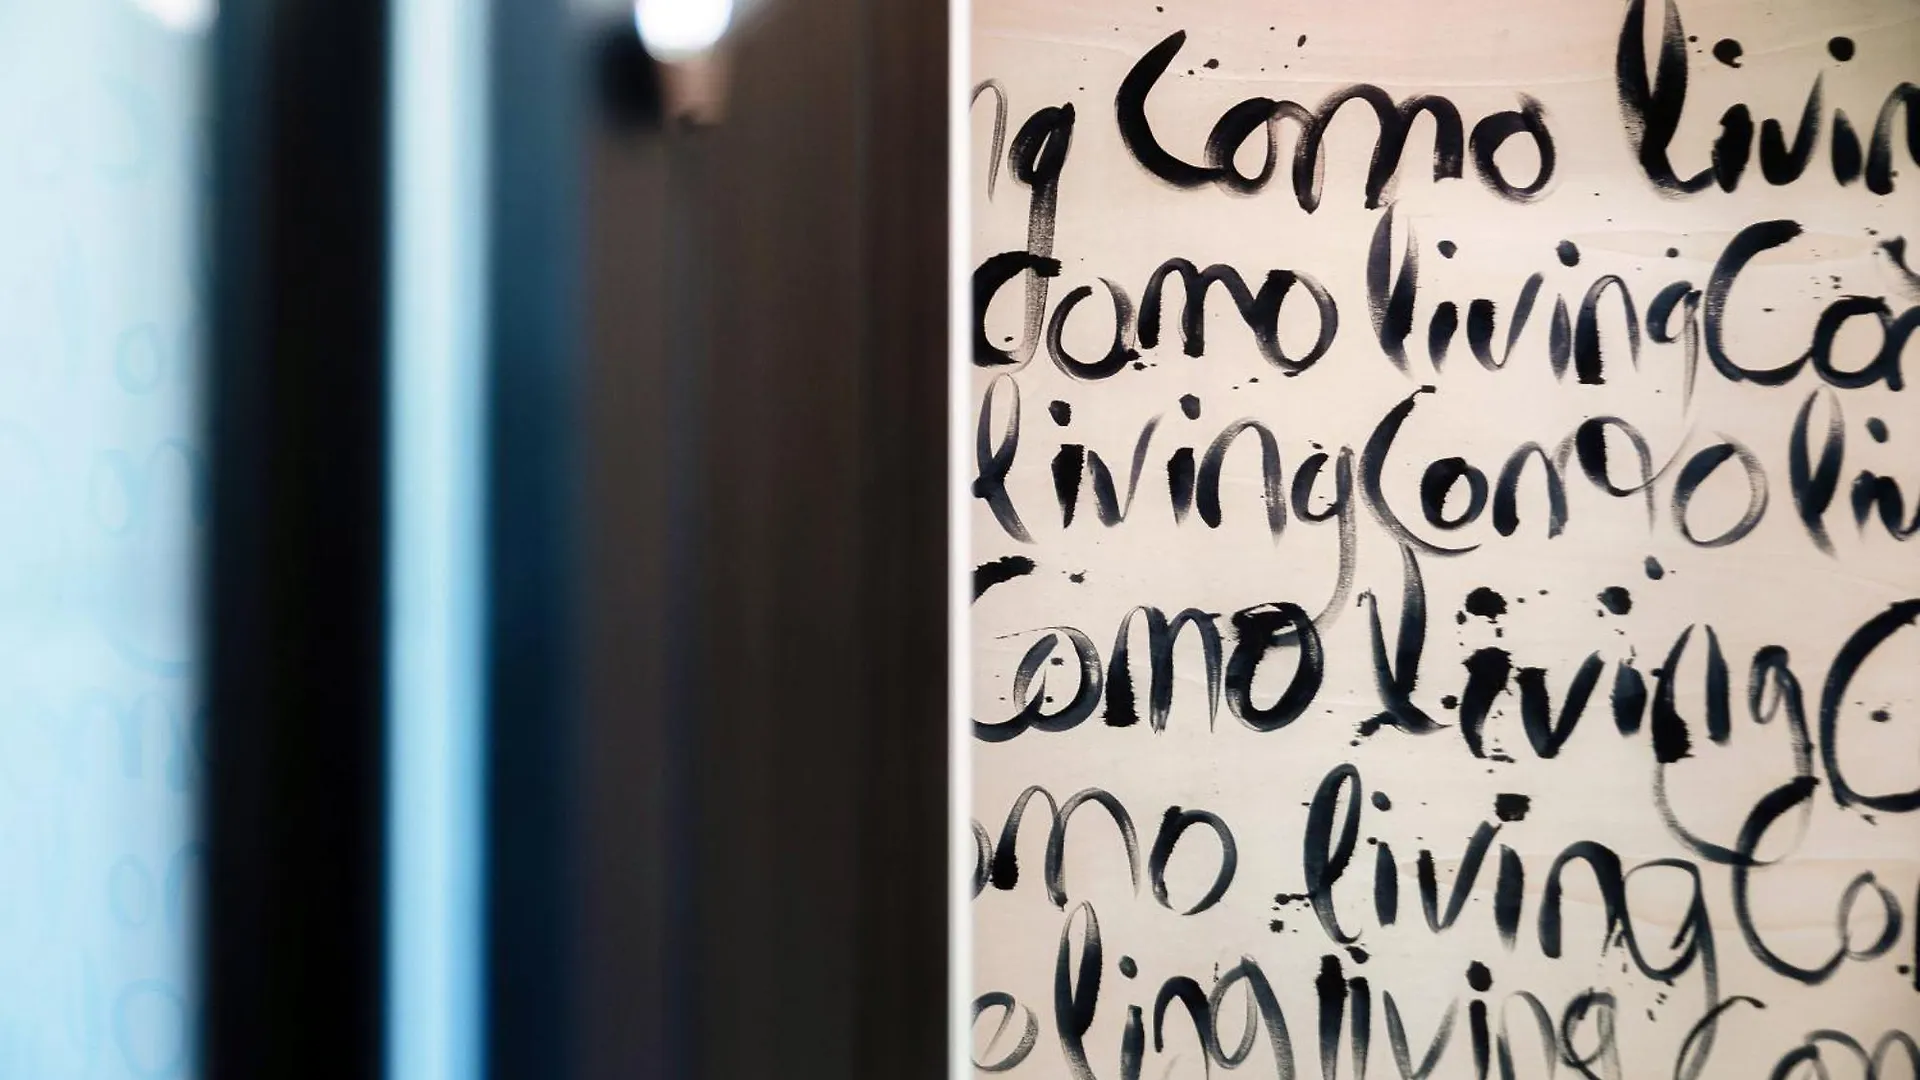 ng Como livin
Como living Co
living Como liv
Como living C
omo living Co
o ling living Com